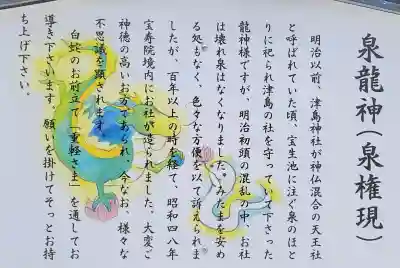 泉龍神（泉権現）
明治以前、津島神社が神仏混合の天王社
と呼ばれていた頃、宝生池に注ぐ泉のほと
りに祀られ津島の社を守っていて下さった
龍神様ですが、明治初頭の混乱の中、お社
は壊れ泉はなくなりました。みたまを安め
る処もなく、色々な方便をもて訴えられま
したが、百年以上の時を経て、昭和四八年
宝寿院境内にお社が造られました。大変ご
神徳の高いお方であられ、今なお、様々な
不思議を顕されます。
白蛇のお前立て「重軽さま」を通してお
導き下さいます。願いを掛けてそっとお持
ち上げ下さい。